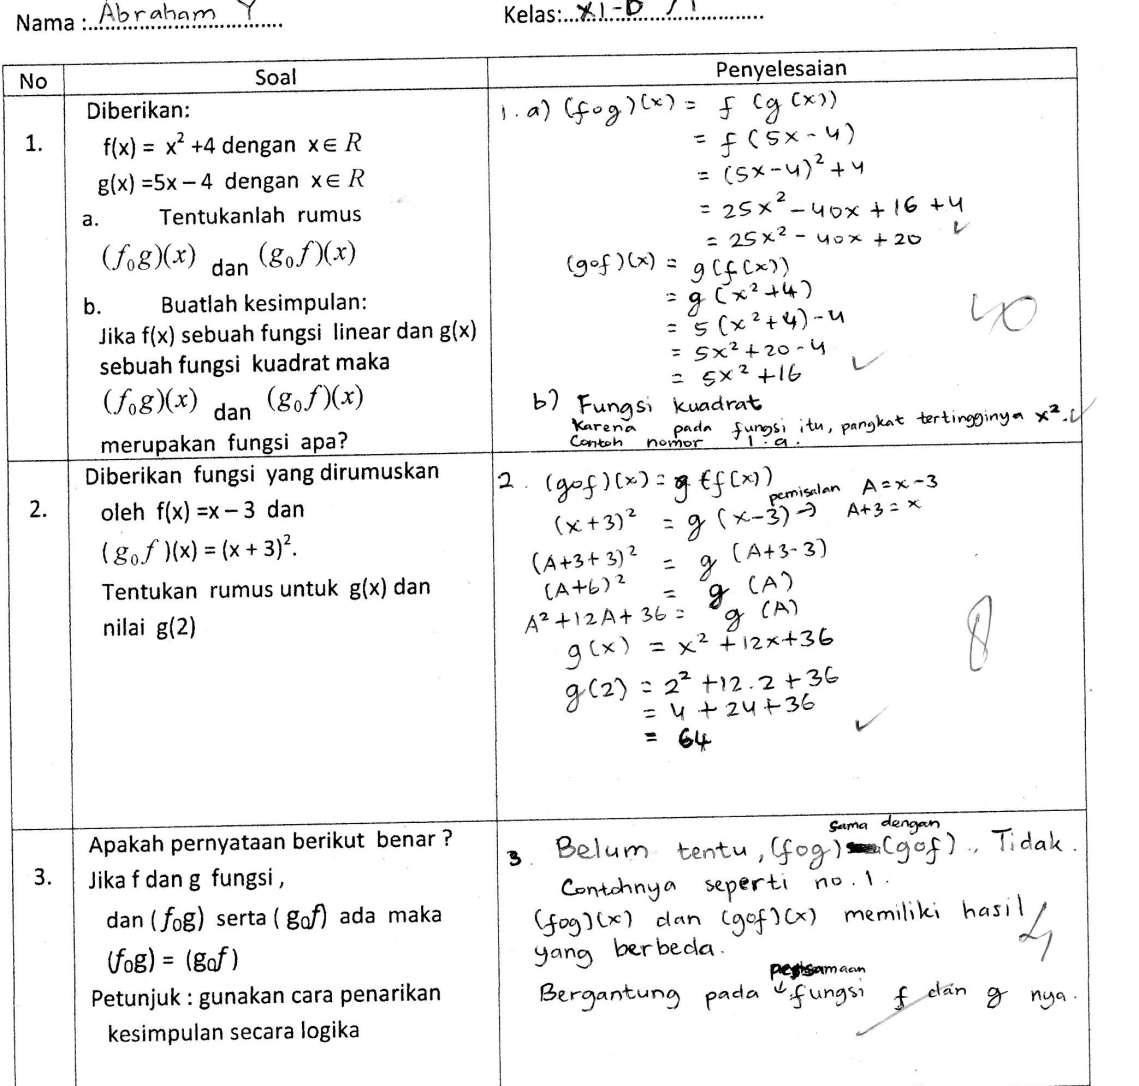 Nama : Abraham Y
Kelas: XI-D / 1
No Soal Penyelesaian
1. Diberikan:
f(x) = x² +4 dengan x∈ R
g(x) =5x – 4 dengan x∈ R
a. Tentukanlah rumus
(f₀g)(x) dan (g₀f)(x)
b. Buatlah kesimpulan:
Jika f(x) sebuah fungsi linear dan g(x)
sebuah fungsi kuadrat maka
(f₀g)(x) dan (g₀f)(x)
merupakan fungsi apa?
1. a) (fog)(x) = f (g(x))
= f (5x - 4)
= (5x-4)² + 4
= 25x² - 40x + 16 + 4
= 25x² - 40x + 20
(gof)(x) = g(f(x))
= g (x²+4)
= 5 (x²+4) - 4
= 5x² + 20 - 4
= 5x² + 16
b) Fungsi kuadrat
karena pada fungsi itu, pangkat tertingginya x².
Contoh nomor 1.a.
40
2. Diberikan fungsi yang dirumuskan
oleh f(x) =x – 3 dan
(g₀f)(x) = (x + 3)².
Tentukan rumus untuk g(x) dan
nilai g(2)
2. (gof)(x) = g (f(x))
pemisalan A = x - 3
(x+3)² = g (x-3) → A+3 = x
(A+3+3)² = g (A+3-3)
(A+6)² = g (A)
A²+12A+36 = g (A)
g(x) = x² + 12x + 36
g(2) = 2² + 12.2 + 36
= 4 + 24 + 36
= 64
8
3. Apakah pernyataan berikut benar ?
Jika f dan g fungsi ,
dan (f₀g) serta (g₀f) ada maka
(f₀g) = (g₀f)
Petunjuk : gunakan cara penarikan
kesimpulan secara logika
3. Belum tentu, (fog) sama dengan (gof)., Tidak.
Contohnya seperti no. 1.
(fog)(x) dan (gof)(x) memiliki hasil
yang berbeda.
Bergantung pada persamaan fungsi f dan g nya.
4